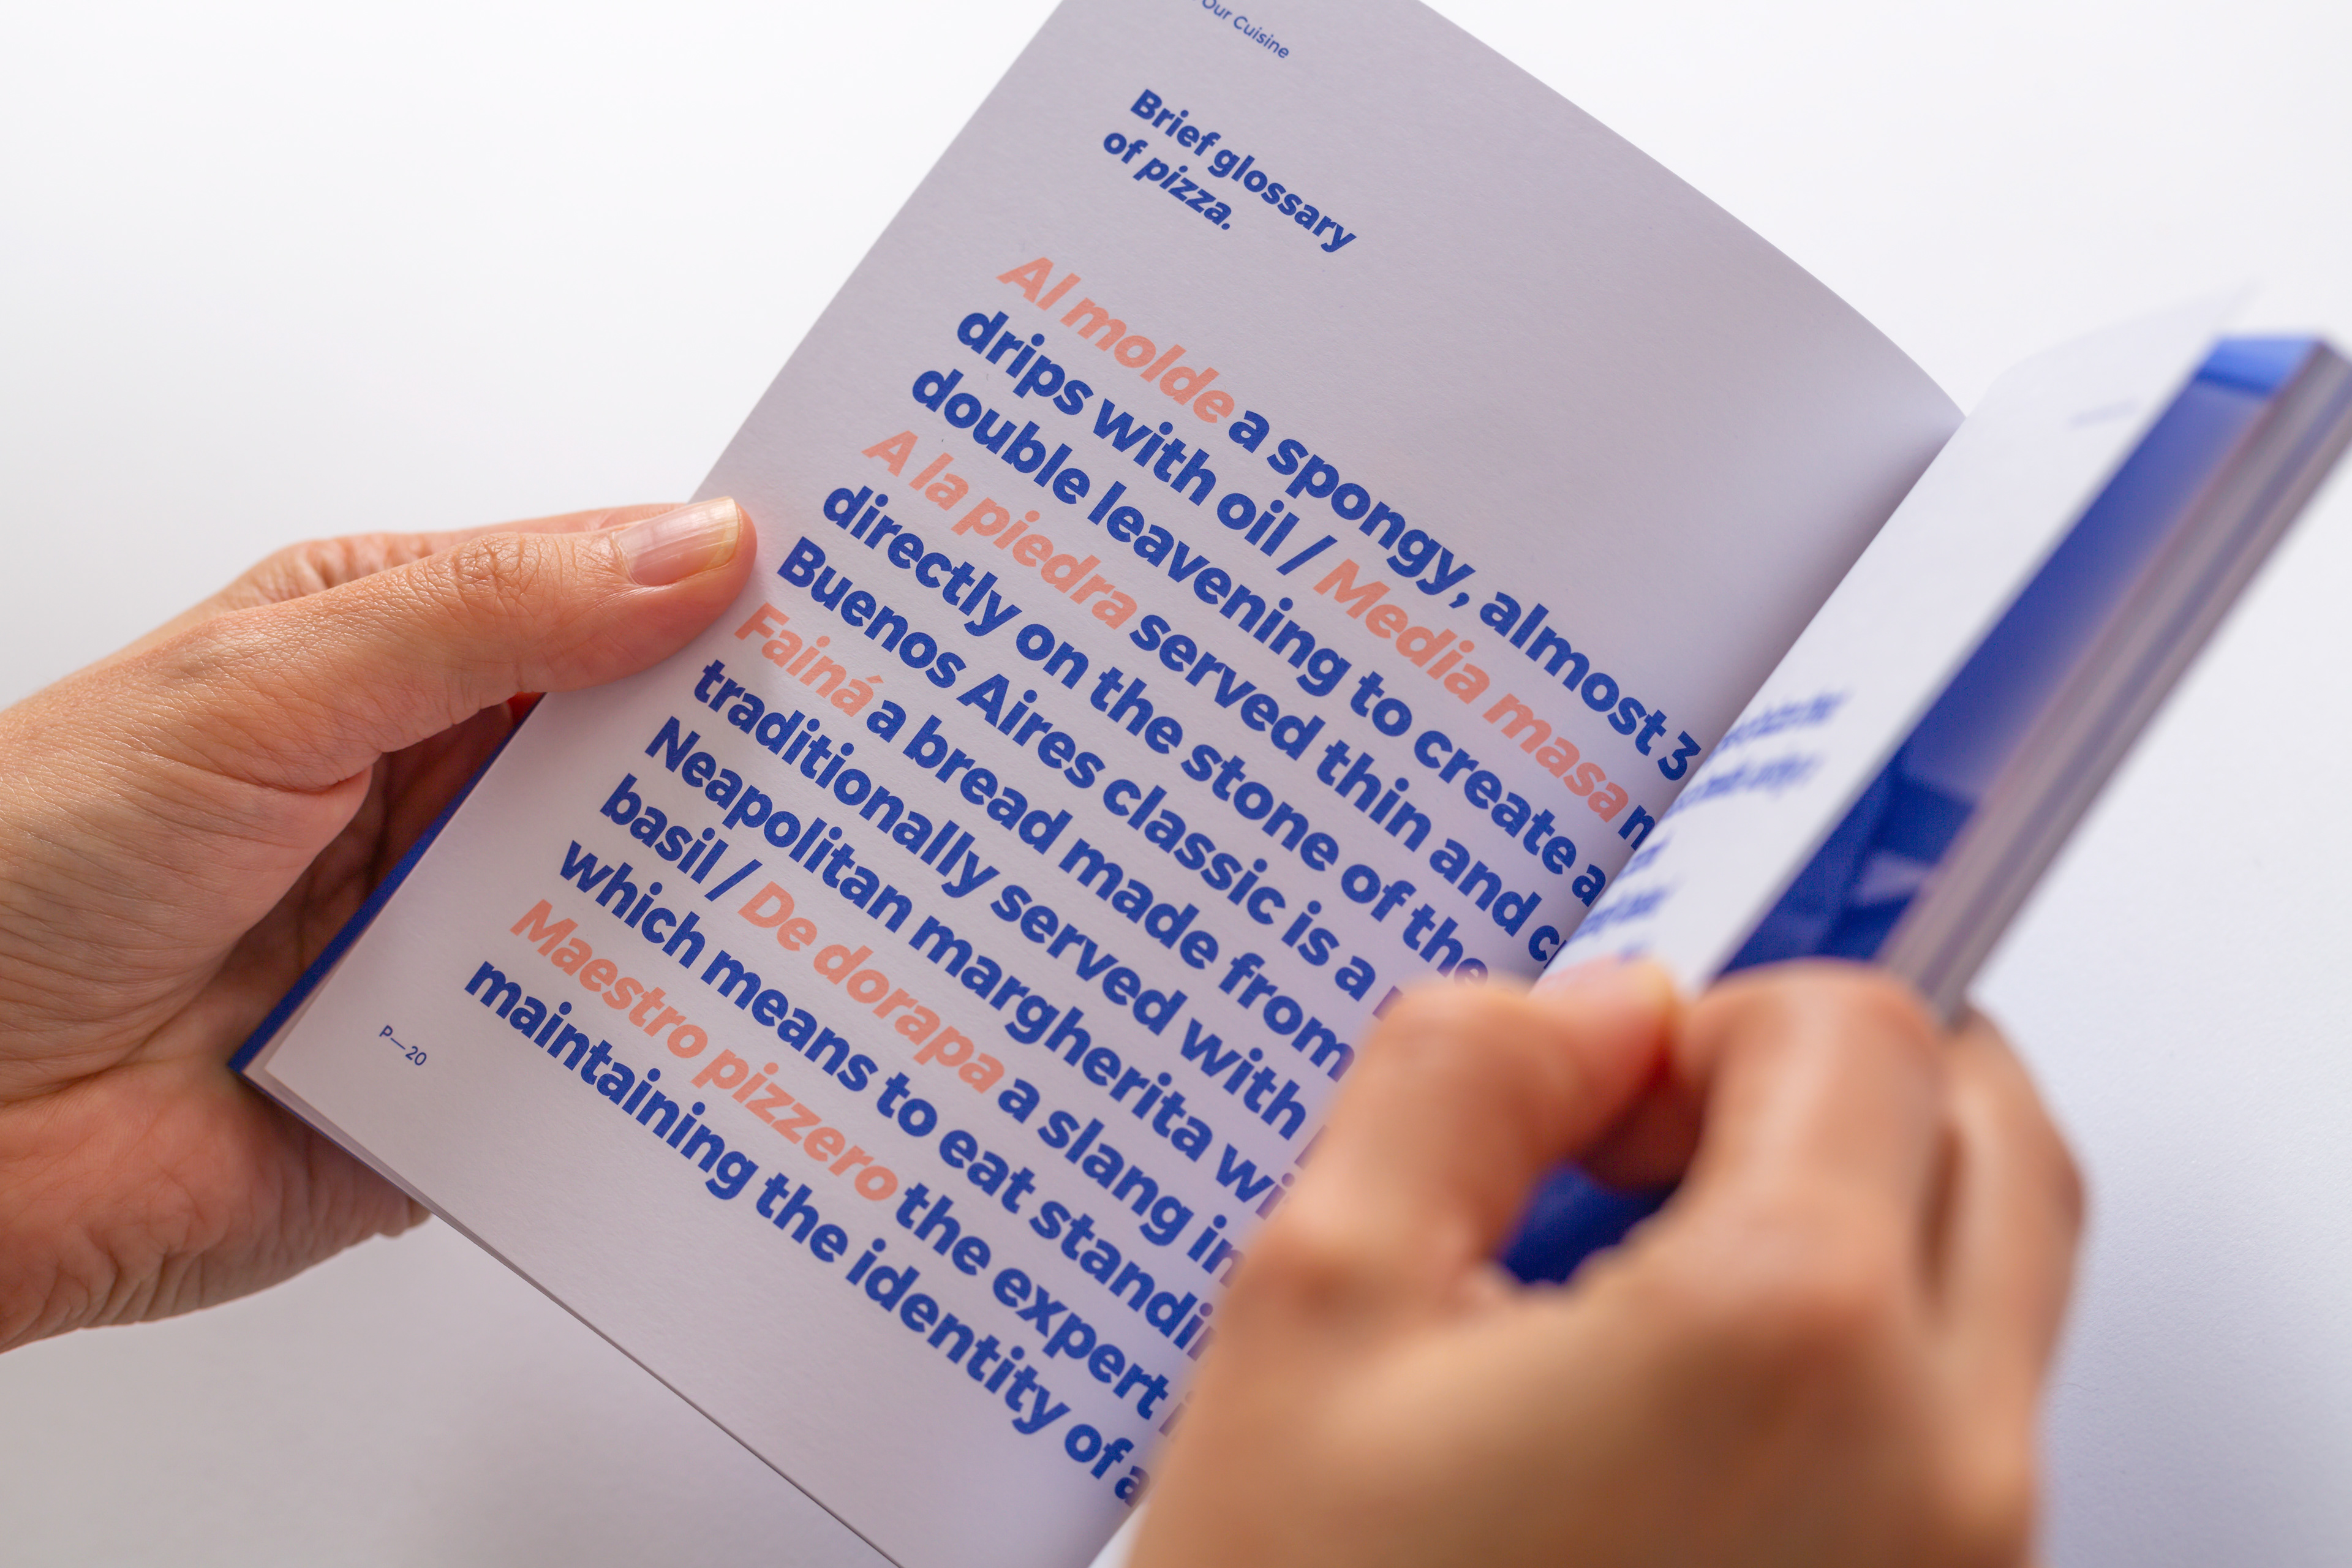 Our Cuisine
Brief glossary
of pizza.
Al molde a spongy, almost 3
drips with oil / Media masa
double leavening to create a
A la piedra served thin and
directly on the stone of the
Buenos Aires classic is a
Fainá a bread made from
traditionally served with
Neapolitan margherita
basil / De dorapa a slang in
which means to eat
Maestro pizzero the expert
maintaining the identity of a
P—20